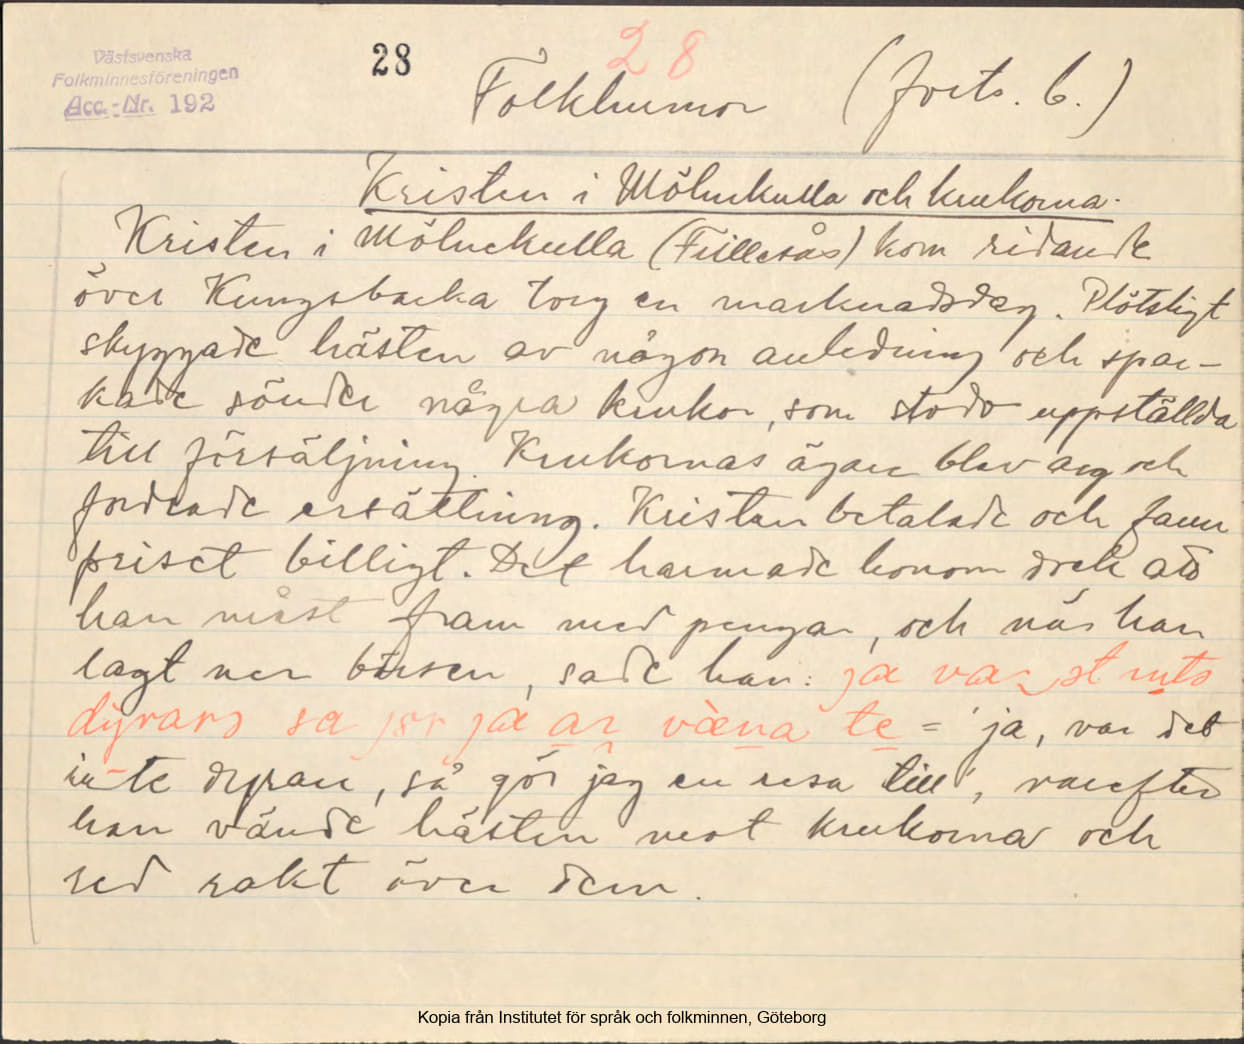 Västsvenska
Folkminnesföreningen
Acc.-Nr. 192
28
28
Folkhumor (forts. 6.)
Kristen i Mölnekulla och krukorna.
Kristen i Mölnekulla (Fillesås) kom ridande
över Kungsbacka torg en marknadsdag. Plötsligt
skyggade hästen av någon anledning och spar-
kade sönder några krukor, som stodo uppställda
till försäljning. Krukornas ägare blev arg och
fordrade ersättning. Kristen betalade och fann
priset billigt. Det harmade honom dock att
han måst fram med pengar, och när han
lagt ner börsen, sade han: ja va
dyrars sa ja væna te = 'ja, var det
inte dyrare, så gör jag en resa till', varefter
han vände hästen mot krukorna och
red rakt över dem.
Kopia från Institutet för språk och folkminnen, Göteborg